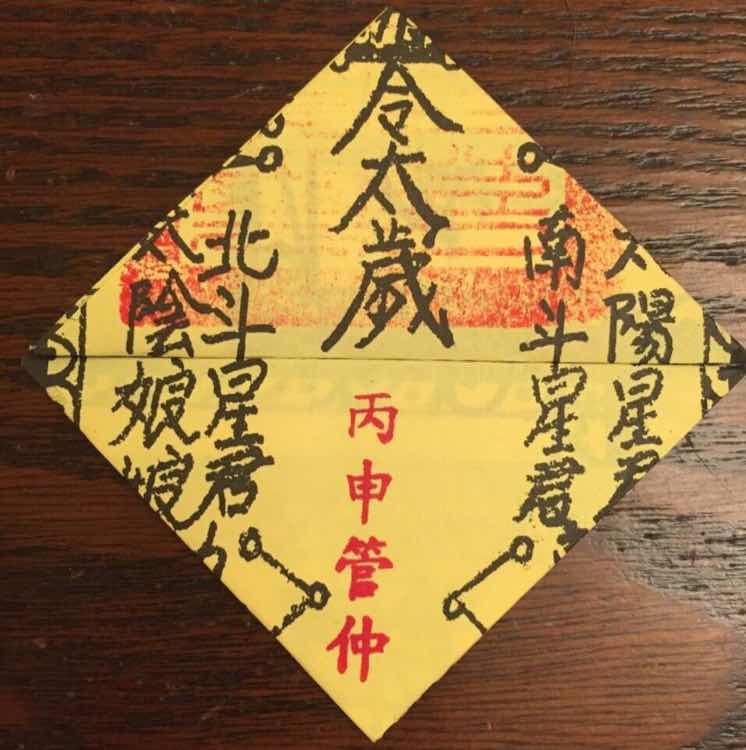 太陽星君
南斗星君
令太歲
丙申管仲
北斗星君
太陰娘娘